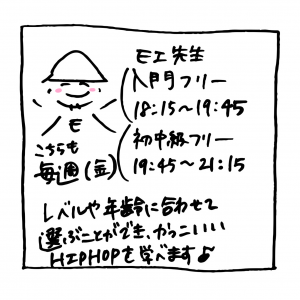 モエ先生
入門フリー
18:15〜19:45
モ
こちらも
毎週(金)
初中級フリー
19:45〜21:15
レベルや年齢に合わせて
選ぶことができ、かっこいい
HIPHOPを学べます♪